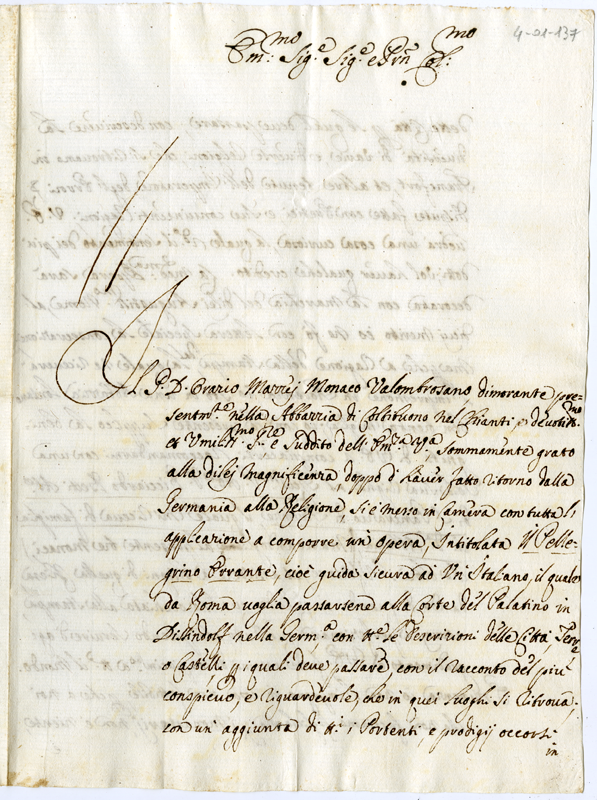 4-01-137
Em:mo Sig.e Sig.e e Prn̄ Col:mo
Il P. D. Orazio Mazzej Monaco Valombrosano, dimorante pre-
sentem.te nella Abbazzia di Coltibuono nel Chianti, devotis.mo
et Umiliss.mo Se.re e Suddito dell' Em.za V.ra, sommamente grato
alla dilej Magnificenza, doppo d'haver fatto ritorno dalla
Germania alla Religione, si è messo in Camera con tutta l'
applicazione a comporre un' Opera, Intitolata Il Pelle-
grino Errante, cioè guida sicura ad Un Italiano, il quale
da Roma voglia passarsene alla Corte del Palatino in
Dilindolf nella Germ.a con tt.e le Descrizioni delle Città, Terre
o Castelli, p i quali deve passare, con il racconto del più
conspicuo, e riguardevole, che in quei luoghi si ritrova;
con un' aggiunta di tt.i i Portenti, e prodigij occorsi
in